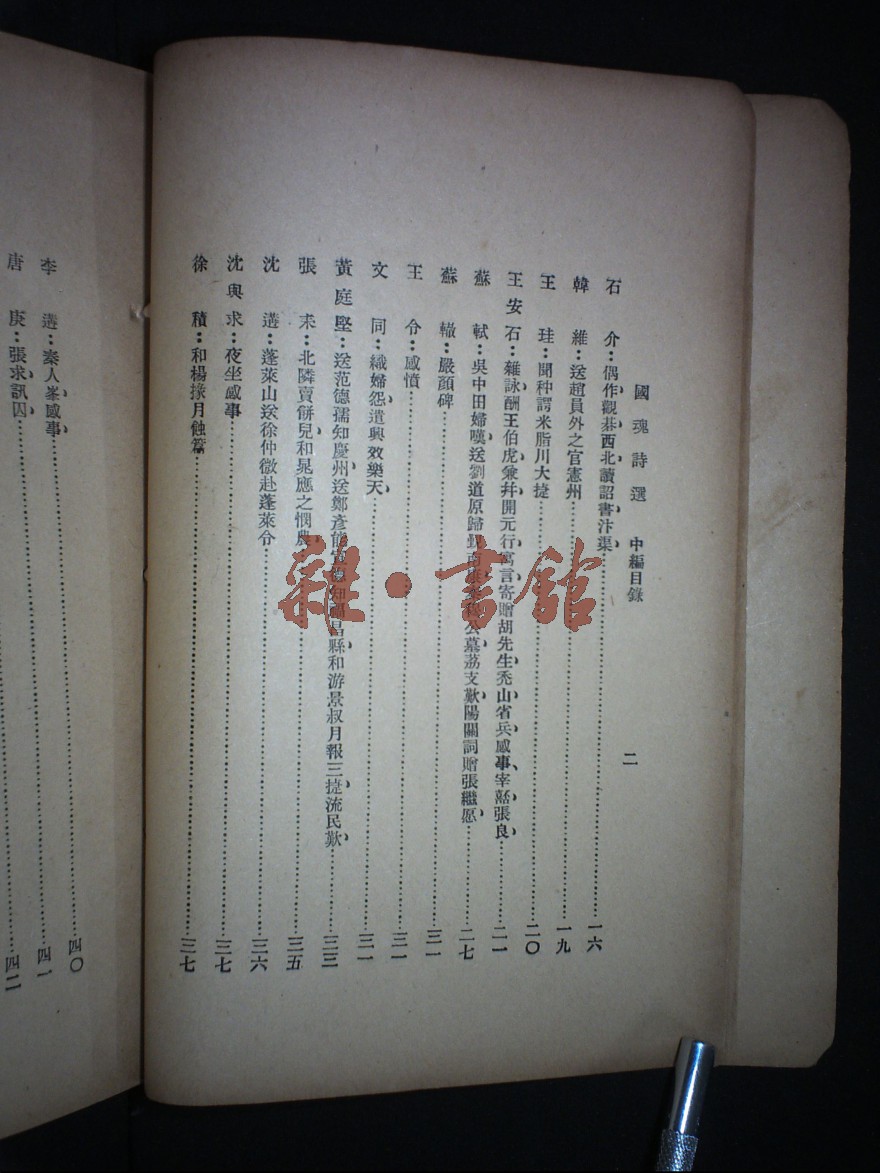 國魂詩選 中編目錄 二
石介：偶作、觀碁、西北、讀詔書、汴渠……一六
韓維：送趙員外之官憲州……一九
王珪：聞种諤米脂川大捷……二〇
王安石：雜詠、酬王伯虎、兼并、開元行、寓言、寄贈胡先生、禿山、省兵、感事、宰嚭、張良、……二一
蘇軾：吳中田婦嘆、送劉道原歸覲南 公墓、荔支歎、陽關詞贈張繼愿、……二七
蘇轍：嚴顏碑……三一
王令：感憤……三一
文同：織婦怨、遣興效樂天、……三一
黃庭堅：送范德孺知慶州、送鄭彥能 知 昌縣、和游景叔月報三捷、流民歎、……三三
張耒：北隣賣餅兒、和晁應之憫農、……三五
沈遘：蓬萊山送徐仲微赴蓬萊令……三六
沈與求：夜坐感事……三七
徐積：和楊掾月蝕篇……三七
……四〇
李遘：秦人峯、感事、……四一
唐庚：張求、訊囚、……四二
雜·書館